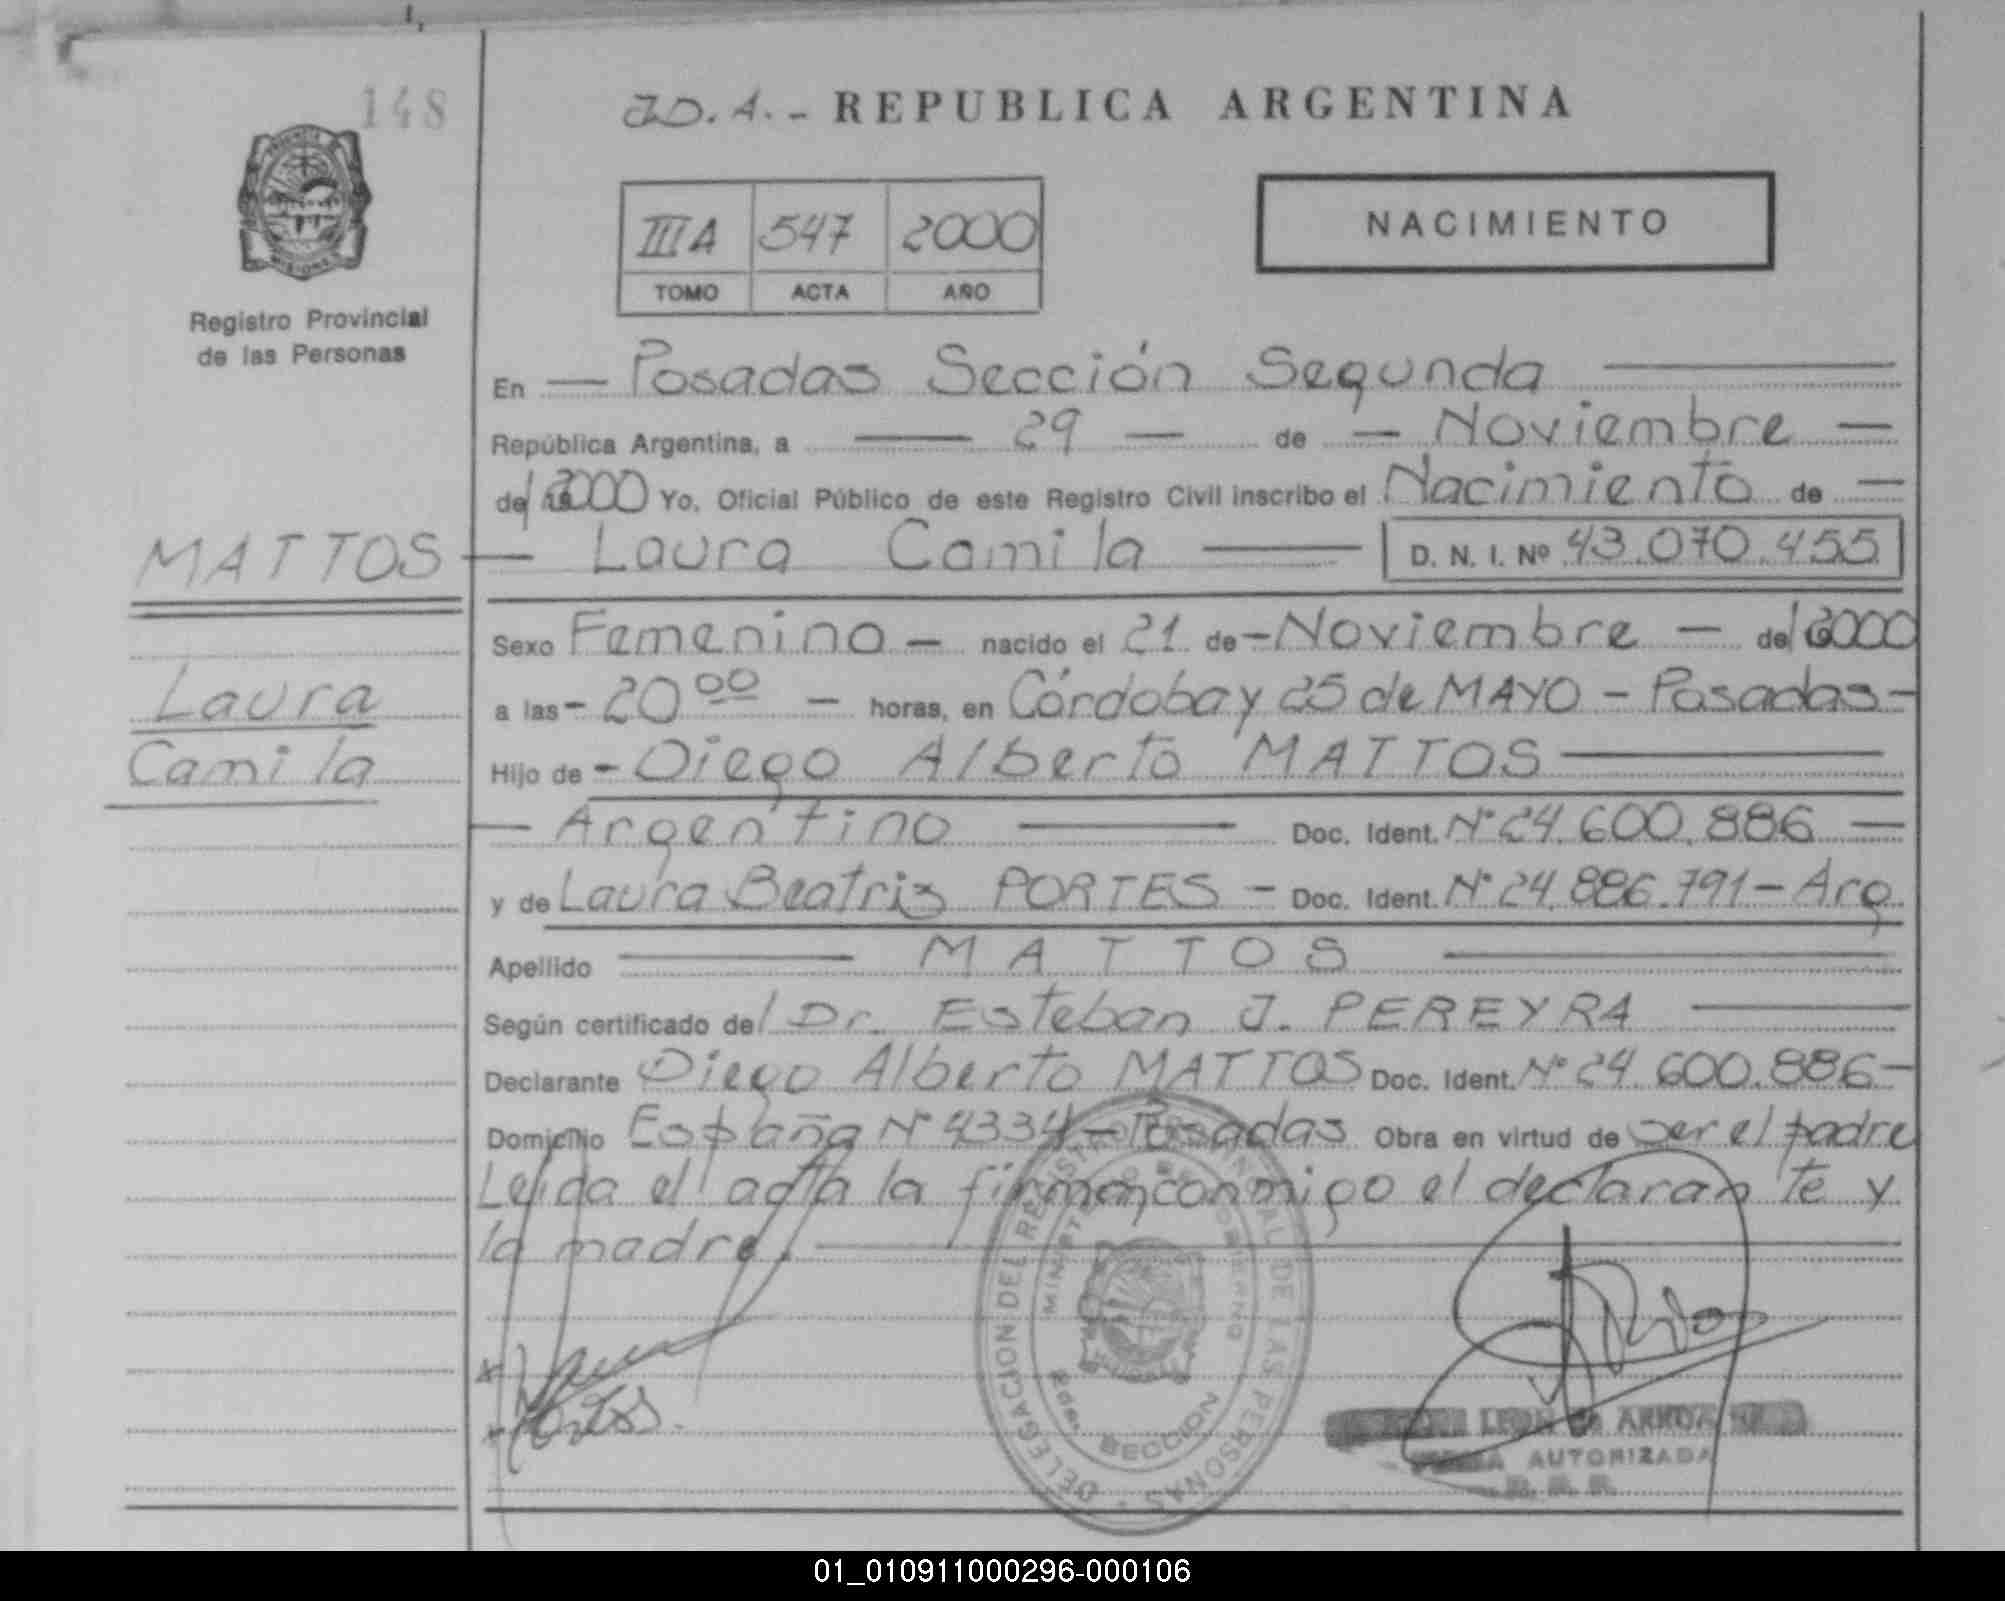 148
J.D.A.- REPUBLICA ARGENTINA
III A 547 2000
TOMO ACTA AÑO
NACIMIENTO
PROVINCIA
MISIONES
Registro Provincial
de las Personas
En — Posadas Sección Segunda —
República Argentina, a — 29 — de — Noviembre —
del 2000 Yo, Oficial Público de este Registro Civil inscribo el Nacimiento de —
MATTOS — Laura Camila — D. N. I. Nº 43.070.455
Sexo Femenino — nacido el 21 de — Noviembre — del 2000
Laura
a las - 20 00 — horas, en Córdoba y 25 de MAYO - Posadas -
Camila
Hijo de - Diego Alberto MATTOS —
— Argentino — Doc. Ident. Nº 24.600.886 —
y de Laura Beatriz PORTES - Doc. Ident. Nº 24.886.791 - Arg.
Apellido — MATTOS —
Según certificado del Dr. Esteban J. PEREYRA —
Declarante Diego Alberto MATTOS Doc. Ident. Nº 24.600.886 -
Domicilio España Nº 4334 - Posadas Obra en virtud de ser el padre
Leida el acta la firman conmigo el declarante y
la madre. —
DELEGACION DEL REGISTRO PROVINCIAL DE LAS PERSONAS
MINISTERIO DE GOBIERNO
2da. SECCION
LEON de ARRUA
AUTORIZADA
01_010911000296-000106